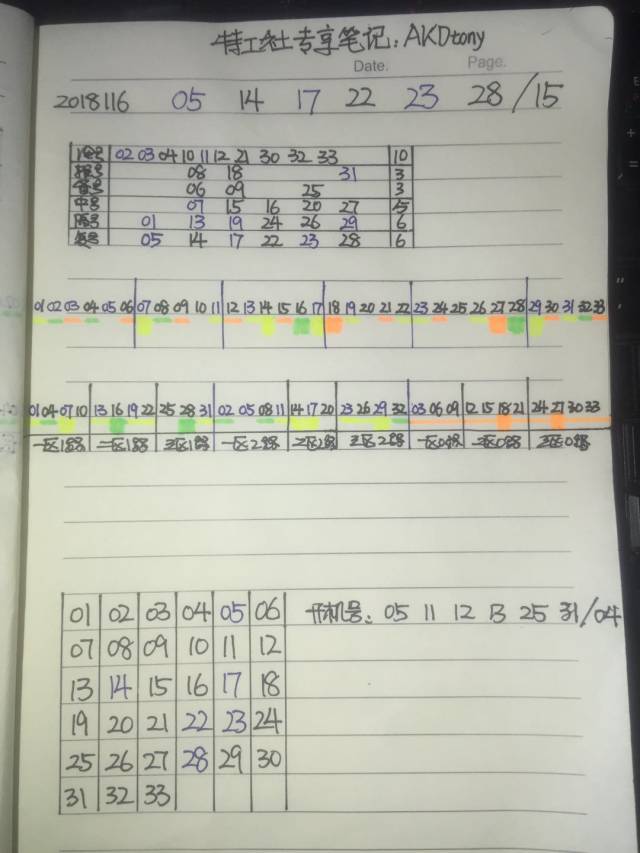 特工社专享笔记:AKDtony
Date. Page.
2018116 05 14 17 22 23 28/15
02 03 04 10 11 12 21 30 32 33 10
08 18 31 3
06 09 25 3
中号 07 15 16 20 27 5
01 13 19 24 26 29 6
05 14 17 22 23 28 6
01 02 03 04 05 06 07 08 09 10 11 12 13 14 15 16 17 18 19 20 21 22 23 24 25 26 27 28 29 30 31 32 33
01 04 07 10 13 16 19 22 25 28 31 02 05 08 11 14 17 20 23 26 29 32 03 06 09 12 15 18 21 24 27 30 33
一区1路 二区1路 三区1路 一区2路 二区2路 三区2路 一区0路 二区0路 三区0路
01 02 03 04 05 06 开机号:05 11 12 13 25 31/04
07 08 09 10 11 12
13 14 15 16 17 18
19 20 21 22 23 24
25 26 27 28 29 30
31 32 33